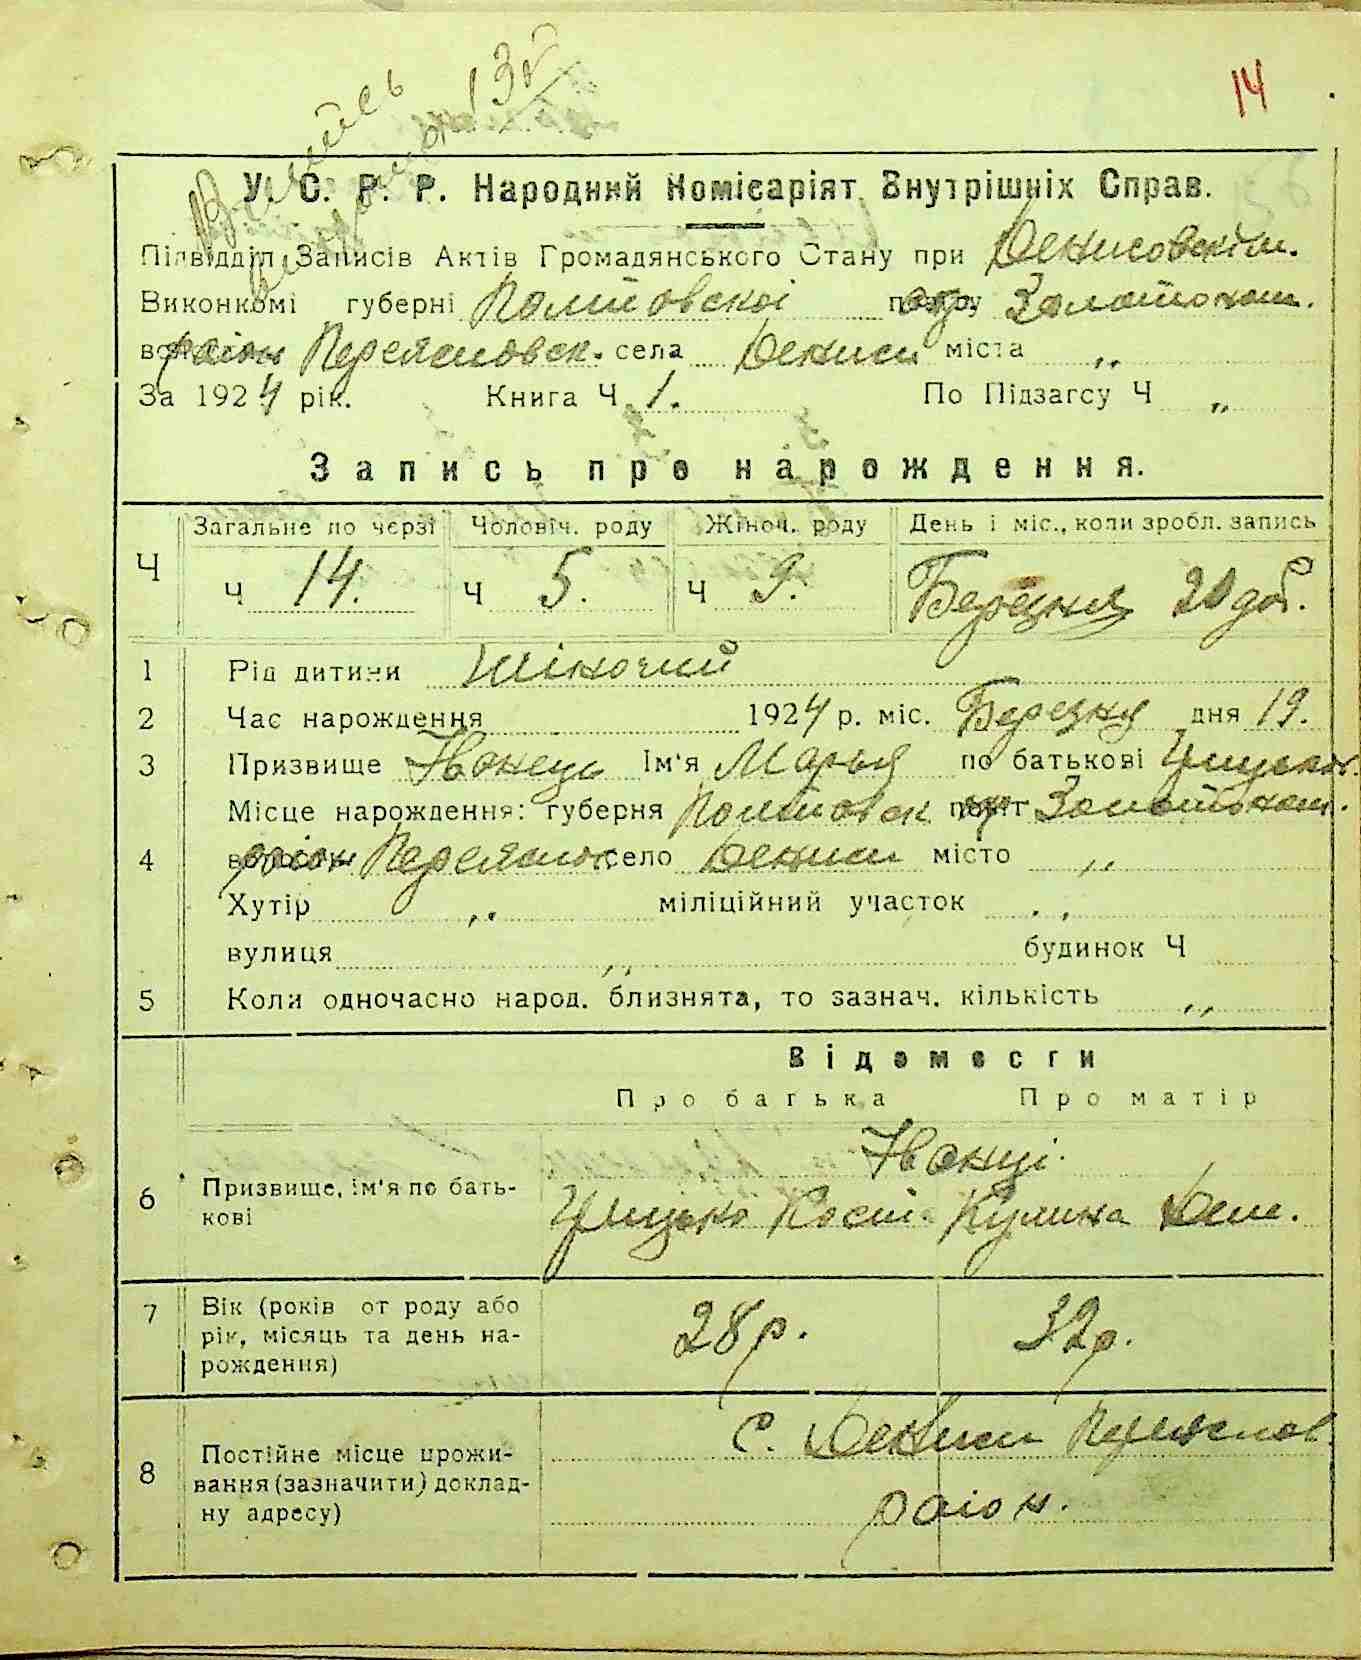 14
У. С. Р. Р. Народний Комісаріят Внутрішніх Справ.
Підвідділ Записів Актів Громадянського Стану при Денисовскім.
Виконкомі губерні Полтовскоі окр. Золотонош.
раіон Переясловск. села Дениси міста „
За 1924 рік. Книга Ч 1. По Підзагсу Ч „
Запись про нарождення.
Ч Загальне по черзі Чоловіч. роду Жіноч. роду День і міс., коли зробл. запись
Ч 14. Ч 5. Ч 9. Березня 20 дня.
1 Рід дитини Жіночий
2 Час нарождення 1924 р. міс. Березня дня 19.
3 Призвище Ім'я Марья по батькові
Місце нарождення: губерня Полтовск Золотонош.
4 раіон Переяслов. село Дениси місто „
Хутір „ міліційний участок „
вулиця „ будинок Ч
5 Коли одночасно народ. близнята, то зазнач. кількість „
Відомости
Про батька Про матір
6 Призвище, ім'я по бать-
кові
Грицько Кост. Кулина Дем.
7 Вік (років от роду або
рік, місяць та день на-
рождення)
28 р. 32 р.
8 Постійне місце прожи-
вання (зазначити) доклад-
ну адресу)
С. Дениси Переяслов.
раіон.